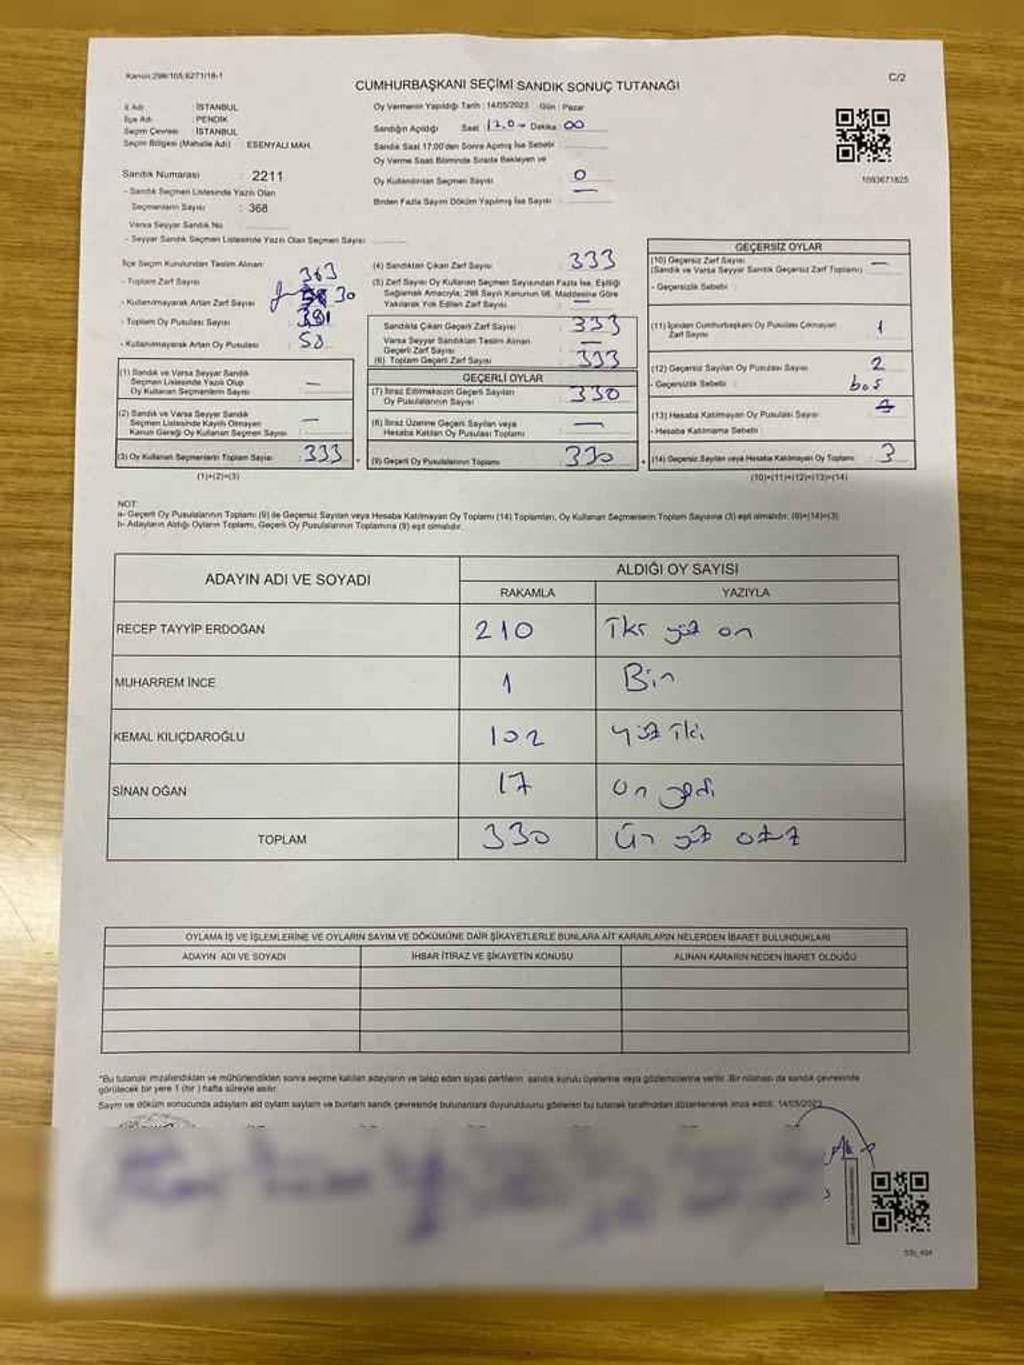 Kanun:298/105,6271/18-1
C/2
CUMHURBAŞKANI SEÇİMİ SANDIK SONUÇ TUTANAĞI
İl Adı : İSTANBUL
İlçe Adı : PENDİK
Seçim Çevresi : İSTANBUL
Seçim Bölgesi (Mahalle Adı) : ESENYALI MAH.
Oy Vermenin Yapıldığı Tarih : 14/05/2023 Gün : Pazar
Sandığın Açıldığı Saat Dakika 00
Sandık Saat 17:00'den Sonra Açılmış İse Sebebi :
Oy Verme Saati Bitiminde Sırada Bekleyen ve
Oy Kullandırılan Seçmen Sayısı : 0
Birden Fazla Sayım Döküm Yapılmış İse Sayısı :
1693671825
Sandık Numarası : 2211
- Sandık Seçmen Listesinde Yazılı Olan
Seçmenlerin Sayısı : 368
Varsa Seyyar Sandık No
- Seyyar Sandık Seçmen Listesinde Yazılı Olan Seçmen Sayısı :
İlçe Seçim Kurulundan Teslim Alınan:
- Toplam Zarf Sayısı : 363
- Kullanılmayarak Artan Zarf Sayısı : 30
- Toplam Oy Pusulası Sayısı :
- Kullanılmayarak Artan Oy Pusulası : 50
(1) Sandık ve Varsa Seyyar Sandık
Seçmen Listesinde Yazılı Olup
Oy Kullanan Seçmenlerin Sayısı : —
(2) Sandık ve Varsa Seyyar Sandık
Seçmen Listesinde Kayıtlı Olmayan
Kanun Gereği Oy Kullanan Seçmen Sayısı : —
(3) Oy Kullanan Seçmenlerin Toplam Sayısı : 333
(1)+(2)=(3)
(4) Sandıktan Çıkan Zarf Sayısı : 333
(5) Zarf Sayısı Oy Kullanan Seçmen Sayısından Fazla İse, Eşitliği
Sağlamak Amacıyla; 298 Sayılı Kanunun 98. Maddesine Göre
Yakılarak Yok Edilen Zarf Sayısı : —
Sandıkta Çıkan Geçerli Zarf Sayısı : 333
Varsa Seyyar Sandıktan Teslim Alınan
Geçerli Zarf Sayısı : —
(6) Toplam Geçerli Zarf Sayısı : 333
GEÇERLİ OYLAR
(7) İtiraz Edilmeksizin Geçerli Sayılan
Oy Pusulalarının Sayısı : 330
(8) İtiraz Üzerine Geçerli Sayılan veya
Hesaba Katılan Oy Pusulası Toplamı : —
(9) Geçerli Oy Pusulalarının Toplamı : 330
GEÇERSİZ OYLAR
(10) Geçersiz Zarf Sayısı : —
(Sandık ve Varsa Seyyar Sandık Geçersiz Zarf Toplamı)
- Geçersizlik Sebebi :
(11) İçinden Cumhurbaşkanı Oy Pusulası Çıkmayan
Zarf Sayısı : 1
(12) Geçersiz Sayılan Oy Pusulası Sayısı : 2
- Geçersizlik Sebebi : boş
(13) Hesaba Katılmayan Oy Pusulası Sayısı :
- Hesaba Katılmama Sebebi :
(14) Geçersiz Sayılan veya Hesaba Katılmayan Oy Toplamı : 3
(10)+(11)+(12)+(13)=(14)
NOT:
a- Geçerli Oy Pusulalarının Toplamı (9) ile Geçersiz Sayılan veya Hesaba Katılmayan Oy Toplamı (14) Toplamları, Oy Kullanan Seçmenlerin Toplam Sayısına (3) eşit olmalıdır. (9)+(14)=(3)
b- Adayların Aldığı Oyların Toplamı, Geçerli Oy Pusulalarının Toplamına (9) eşit olmalıdır.
ADAYIN ADI VE SOYADI ALDIĞI OY SAYISI
RAKAMLA YAZIYLA
RECEP TAYYİP ERDOĞAN 210 İki yüz on
MUHARREM İNCE 1 Bir
KEMAL KILIÇDAROĞLU 102 yüz iki
SİNAN OĞAN 17 On yedi
TOPLAM 330 Üç yüz otuz
OYLAMA İŞ VE İŞLEMLERİNE VE OYLARIN SAYIM VE DÖKÜMÜNE DAİR ŞİKAYETLERLE BUNLARA AİT KARARLARIN NELERDEN İBARET BULUNDUKLARI
ADAYIN ADI VE SOYADI İHBAR İTİRAZ VE ŞİKAYETİN KONUSU ALINAN KARARIN NEDEN İBARET OLDUĞU
"Bu tutanak imzalandıktan ve mühürlendikten sonra seçime katılan adayların ve talep eden siyasi partilerin sandık kurulu üyelerine veya gözlemcilerine verilir. Bir nüshası da sandık çevresinde
görülecek bir yere 1 (bir) hafta süreyle asılır.
Sayım ve döküm sonucunda adayların aldığı oyların sayılarını ve bunların sandık çevresinde bulunanlara duyurulduğunu gösteren bu tutanak tarafımızdan düzenlenerek imza edildi. 14/05/2023